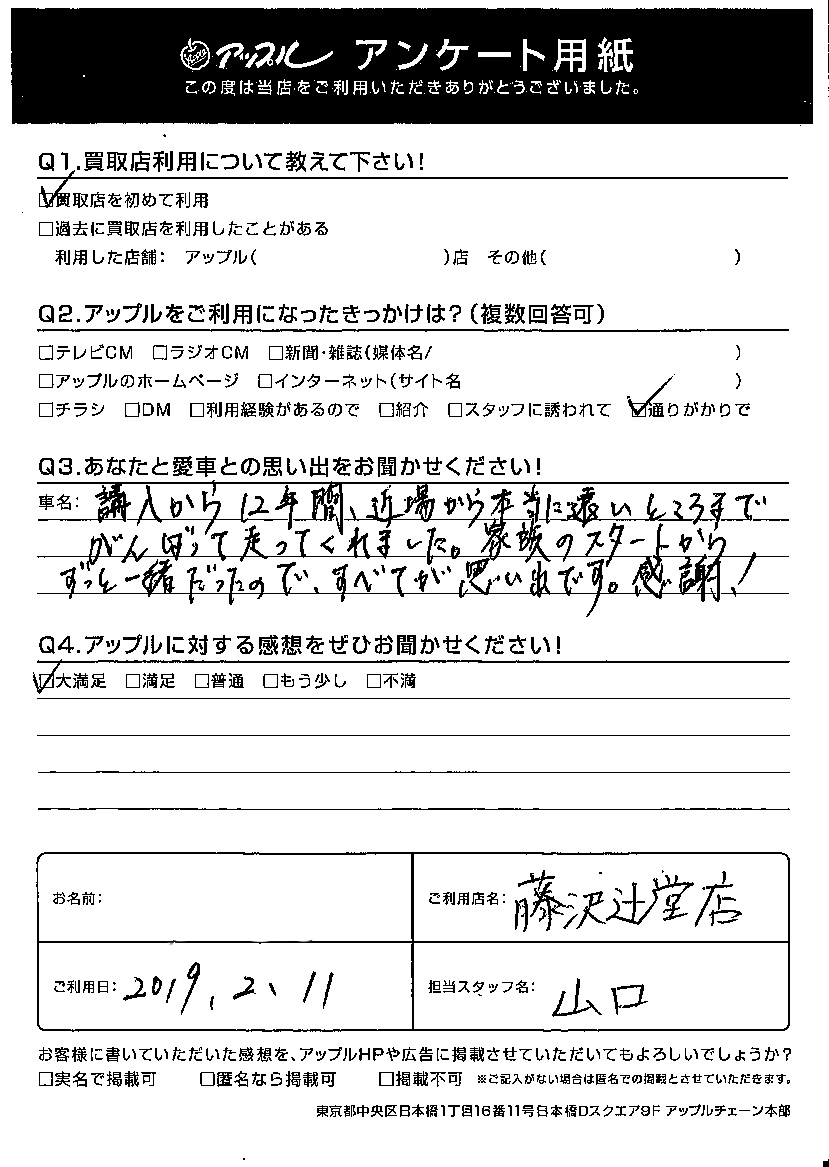 アップル アンケート用紙
この度は当店をご利用いただきありがとうございました。
Q1.買取店利用について教えて下さい!
☑買取店を初めて利用
□過去に買取店を利用したことがある
利用した店舗: アップル( )店 その他( )
Q2.アップルをご利用になったきっかけは?(複数回答可)
□テレビCM □ラジオCM □新聞・雑誌(媒体名/ )
□アップルのホームページ □インターネット(サイト名 )
□チラシ □DM □利用経験があるので □紹介 □スタッフに誘われて ☑通りがかりで
Q3.あなたと愛車との思い出をお聞かせください!
車名: 購入から12年間、近場から本当に遠いところまで
がんばって走ってくれました。家族のスタートから
ずっと一緒だったので、すべてが思い出です。感謝!
Q4.アップルに対する感想をぜひお聞かせください!
☑大満足 □満足 □普通 □もう少し □不満
お名前:
ご利用店名: 藤沢辻堂店
ご利用日: 2019.2、11
担当スタッフ名: 山口
お客様に書いていただいた感想を、アップルHPや広告に掲載させていただいてもよろしいでしょうか?
□実名で掲載可 □匿名なら掲載可 □掲載不可 ※ご記入がない場合は匿名での掲載とさせていただきます。
東京都中央区日本橋1丁目16番11号日本橋Dスクエア9F アップルチェーン本部